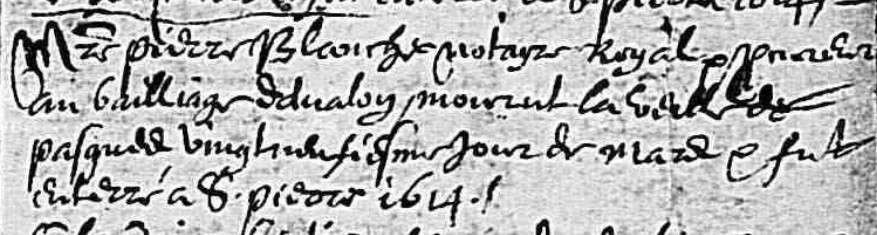 Mre pierre Blanche notayre Royal & procureur
au bailliage davalon mourut la veille de
pasques vingtneufiesme jour de mars & fut
enterré a S. pierre 1614.